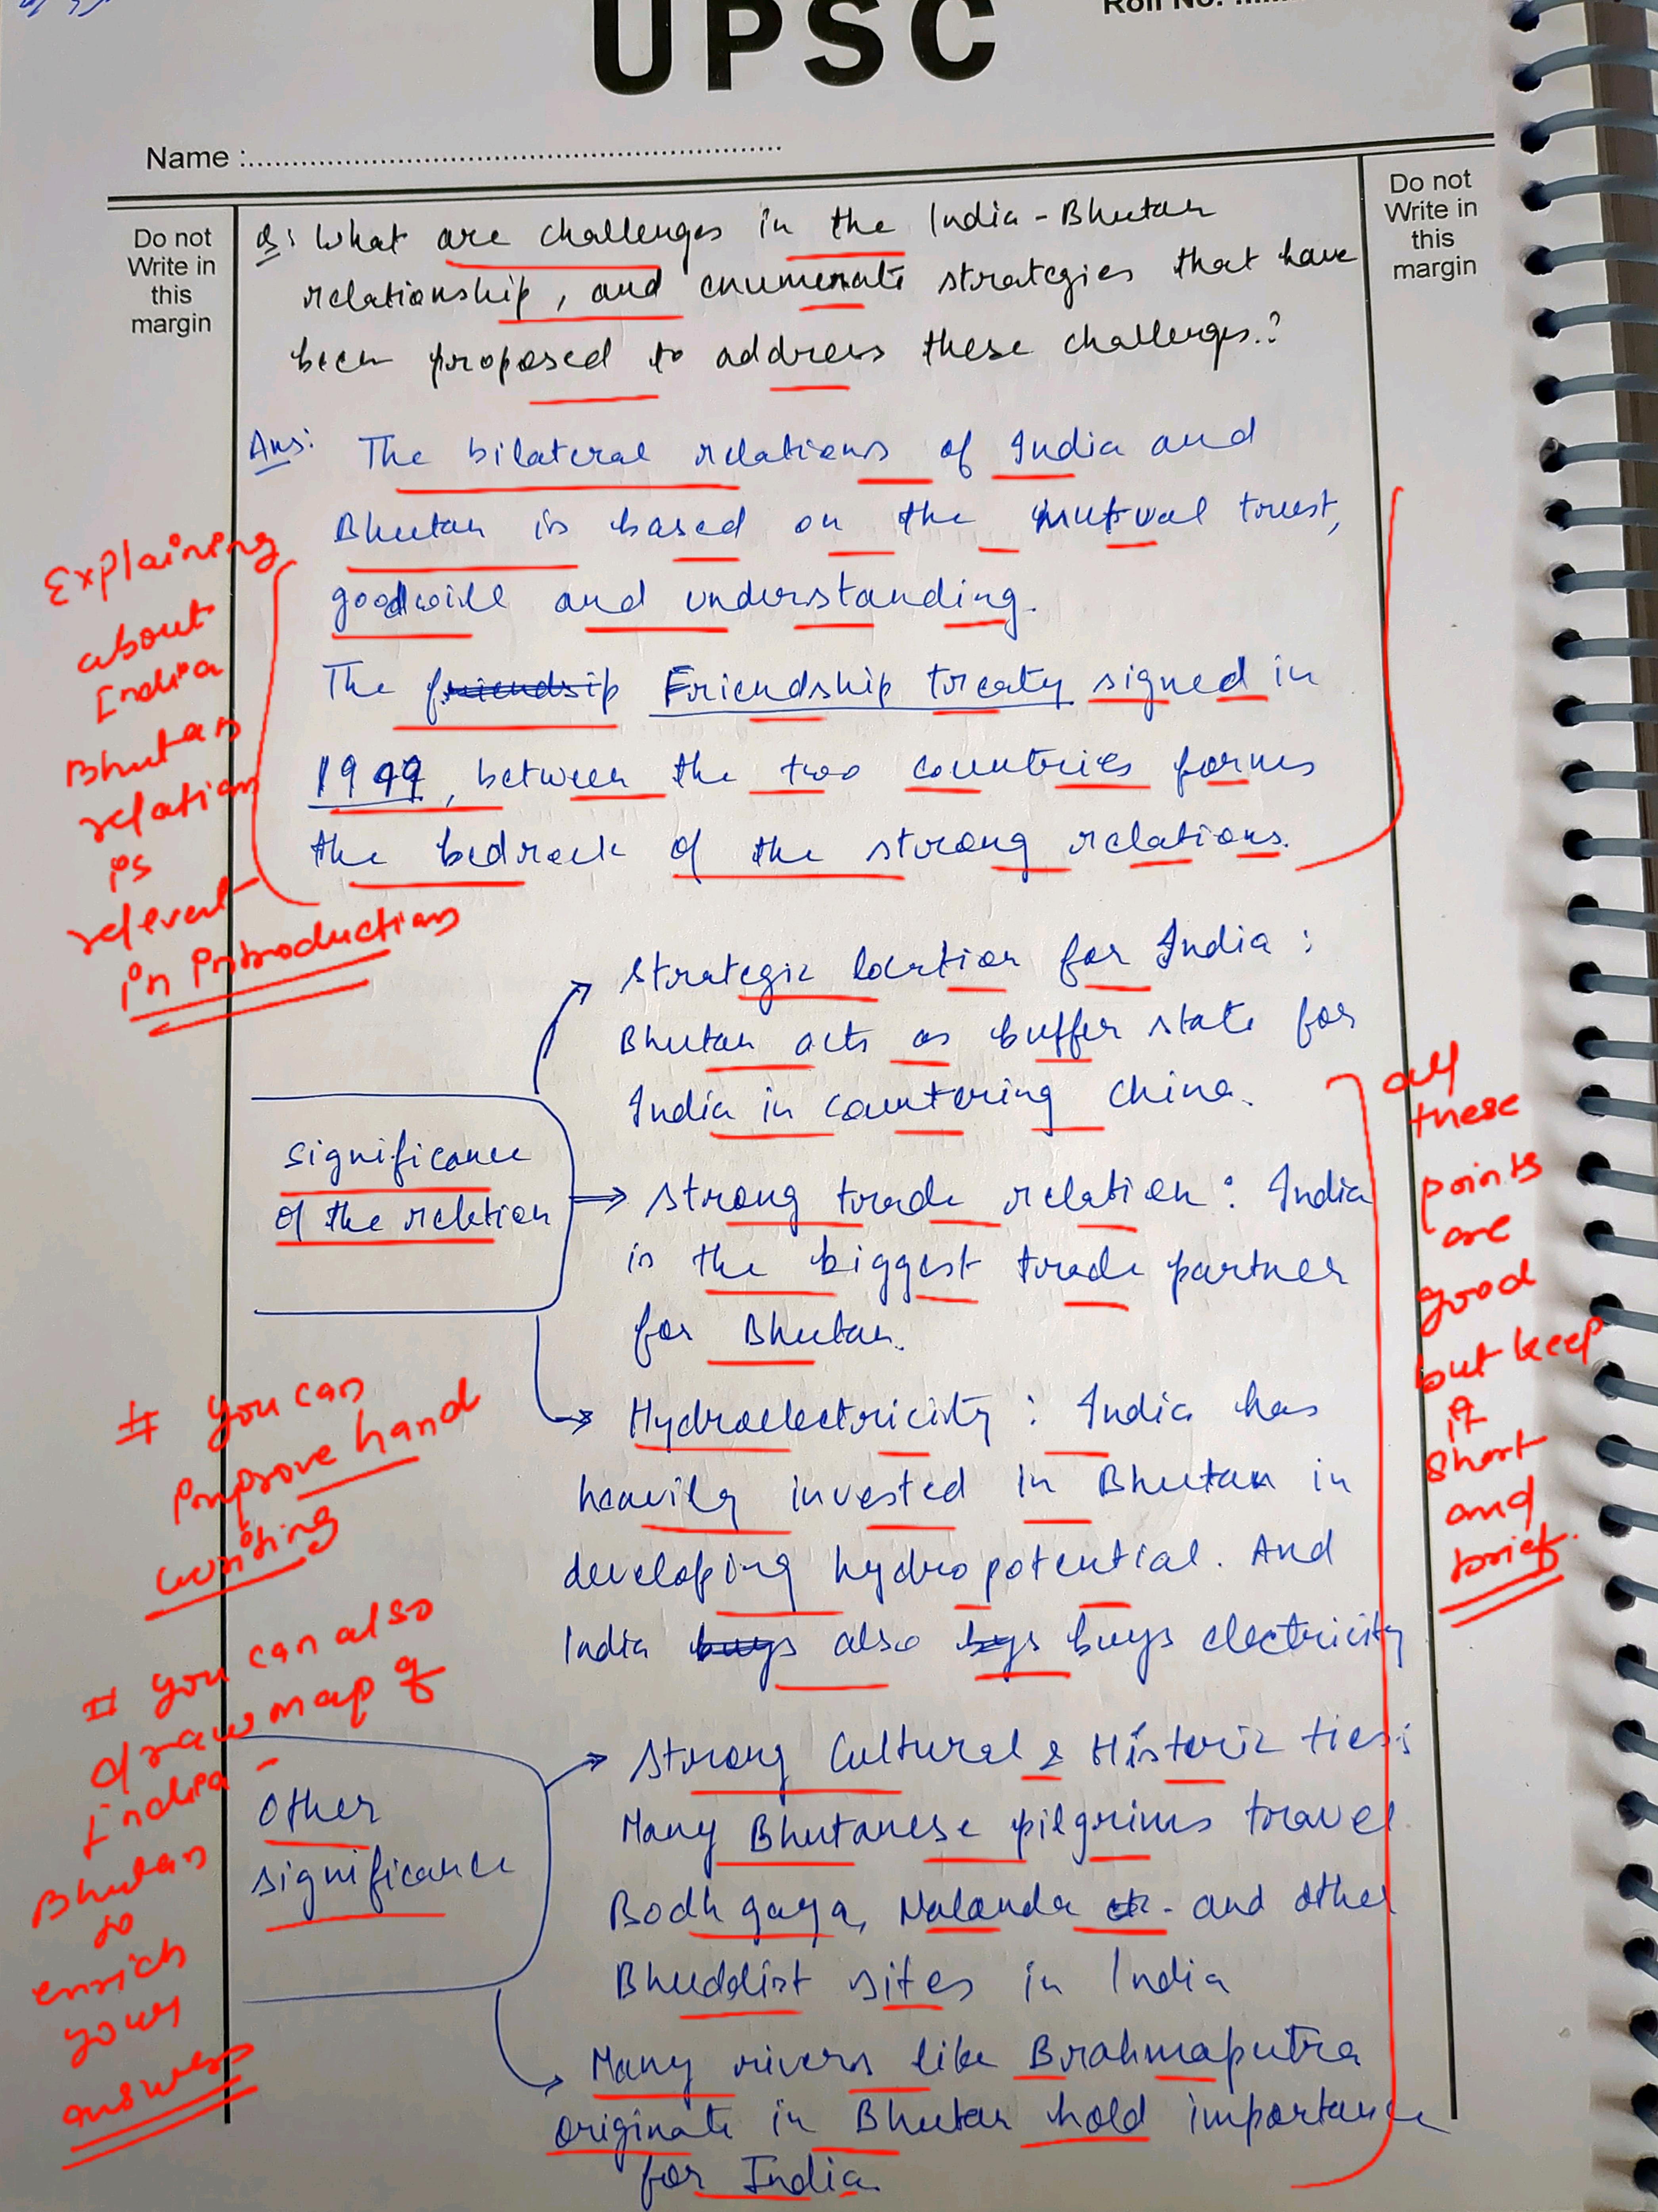 UPSC
Roll No. ......
Name :................................................................
Do not
Write in
this
margin
Do not
Write in
this
margin
Q: What are challenges in the India - Bhutan
relationship, and enumerate strategies that have
been proposed to address these challenges.?
Ans: The bilateral relations of India and
Bhutan is based on the mutual trust,
goodwill and understanding.
The friendsip Friendship treaty signed in
1949, between the two countries forms
the bedrock of the strong relations.
Explaining
about
India
Bhutan
relation
is
relevent
in Introduction
Significance
of the relation
→ Strategic location for India :
Bhutan acts as buffer state for
India in countering China.
→ Strong trade relation : India
is the biggest trade partner
for Bhutan.
→ Hydroelectricity : India has
heavily invested in Bhutan in
developing hydropotential. And
India buys also buys electricity
all
these
points
are
good
but keep
it
short
and
brief.
# You can
improve hand
writing
# You can also
draw map of
India -
Bhutan
to
enrich
your
answer
Other
significance
→ Strong Cultural & Historic ties :
Many Bhutanese pilgrims travel
Bodh gaya, Nalanda etc. and other
Bhuddist sites in India
→ Many rivers like Brahmaputra
originate in Bhutan hold importance
for India.